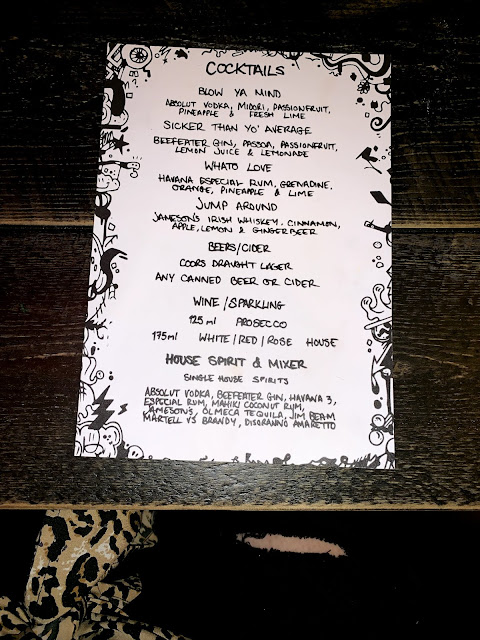 COCKTAILS
BLOW YA MIND
ABSOLUT VODKA, MIDORI, PASSIONFRUIT,
PINEAPPLE & FRESH LIME
SICKER THAN YO' AVERAGE
BEEFEATER GIN, PASSOA, PASSIONFRUIT,
LEMON JUICE & LEMONADE
WHATO LOVE
HAVANA ESPECIAL RUM, GRENADINE,
ORANGE, PINEAPPLE & LIME
JUMP AROUND
JAMESON'S IRISH WHISKEY, CINNAMON,
APPLE, LEMON & GINGERBEER
BEERS/CIDER
COORS DRAUGHT LAGER
ANY CANNED BEER OR CIDER
WINE/SPARKLING
125ml PROSECCO
175ml WHITE/RED/ROSE HOUSE
HOUSE SPIRIT & MIXER
SINGLE HOUSE SPIRITS
ABSOLUT VODKA, BEEFEATER GIN, HAVANA 3,
ESPECIAL RUM, MAHIKI COCONUT RUM,
JAMESON'S, OLMECA TEQUILA, JIM BEAM
MARTELL VS BRANDY, DISORANNO AMARETTO